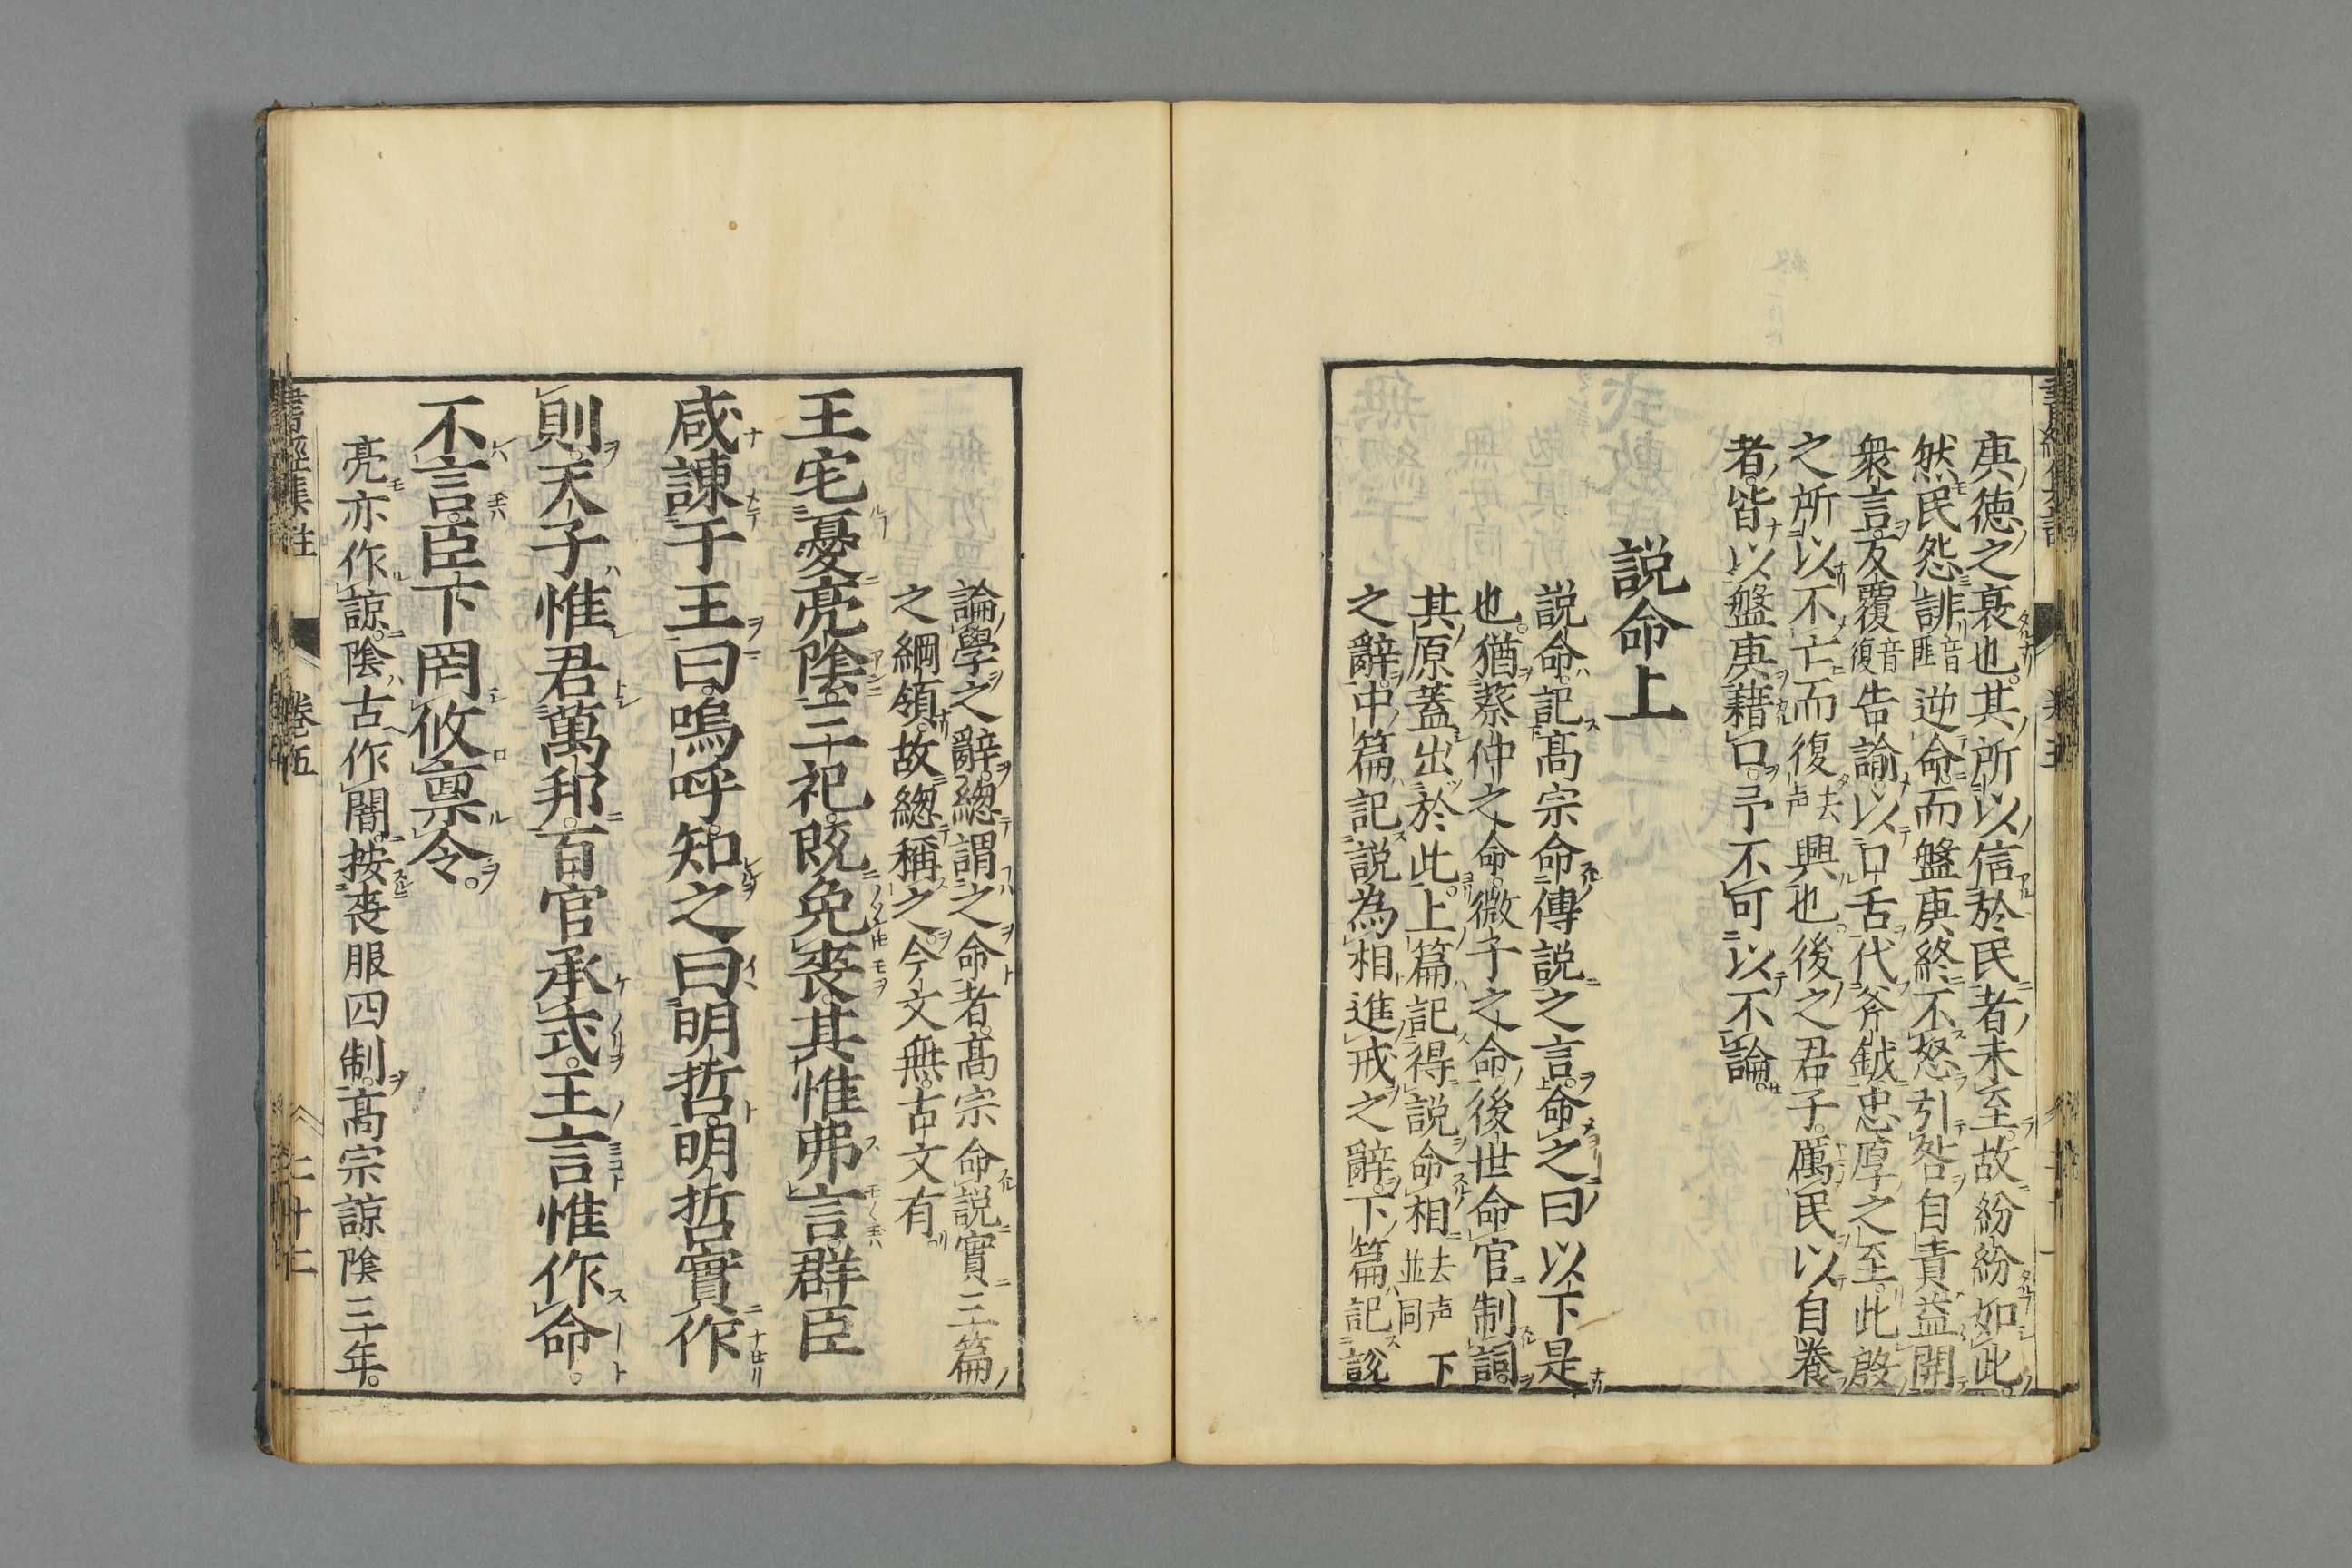 庚徳之衰也其所以信於民者未至故紛紛如此
然民怨誹音匪逆命而盤庚終不怒引咎自責益開
衆言反覆音復告諭以口舌代斧鉞忠厚之至此殷
之所以不亡而復去声興也後之君子厲民以自養
者皆以盤庚藉口予不可以不論
説命上
説命記髙宗命傳説之言命之曰以下是
也猶蔡仲之命微子之命後世命官制詞
其原蓋出於此上篇記得説命相去声並同下
之辭中篇記説為相進戒之辭下篇記説
論學之辭緫謂之命者髙宗命説實三篇
之綱領故緫稱之今文無古文有
王宅憂亮陰三祀既免喪其惟弗言群臣
咸諫于王曰嗚呼知之曰明哲明哲實作
則天子惟君萬邦百官承式王言惟作命
不言臣下罔攸稟令
亮亦作諒陰古作闇按喪服四制髙宗諒陰三年
書經集註
卷五
二十二